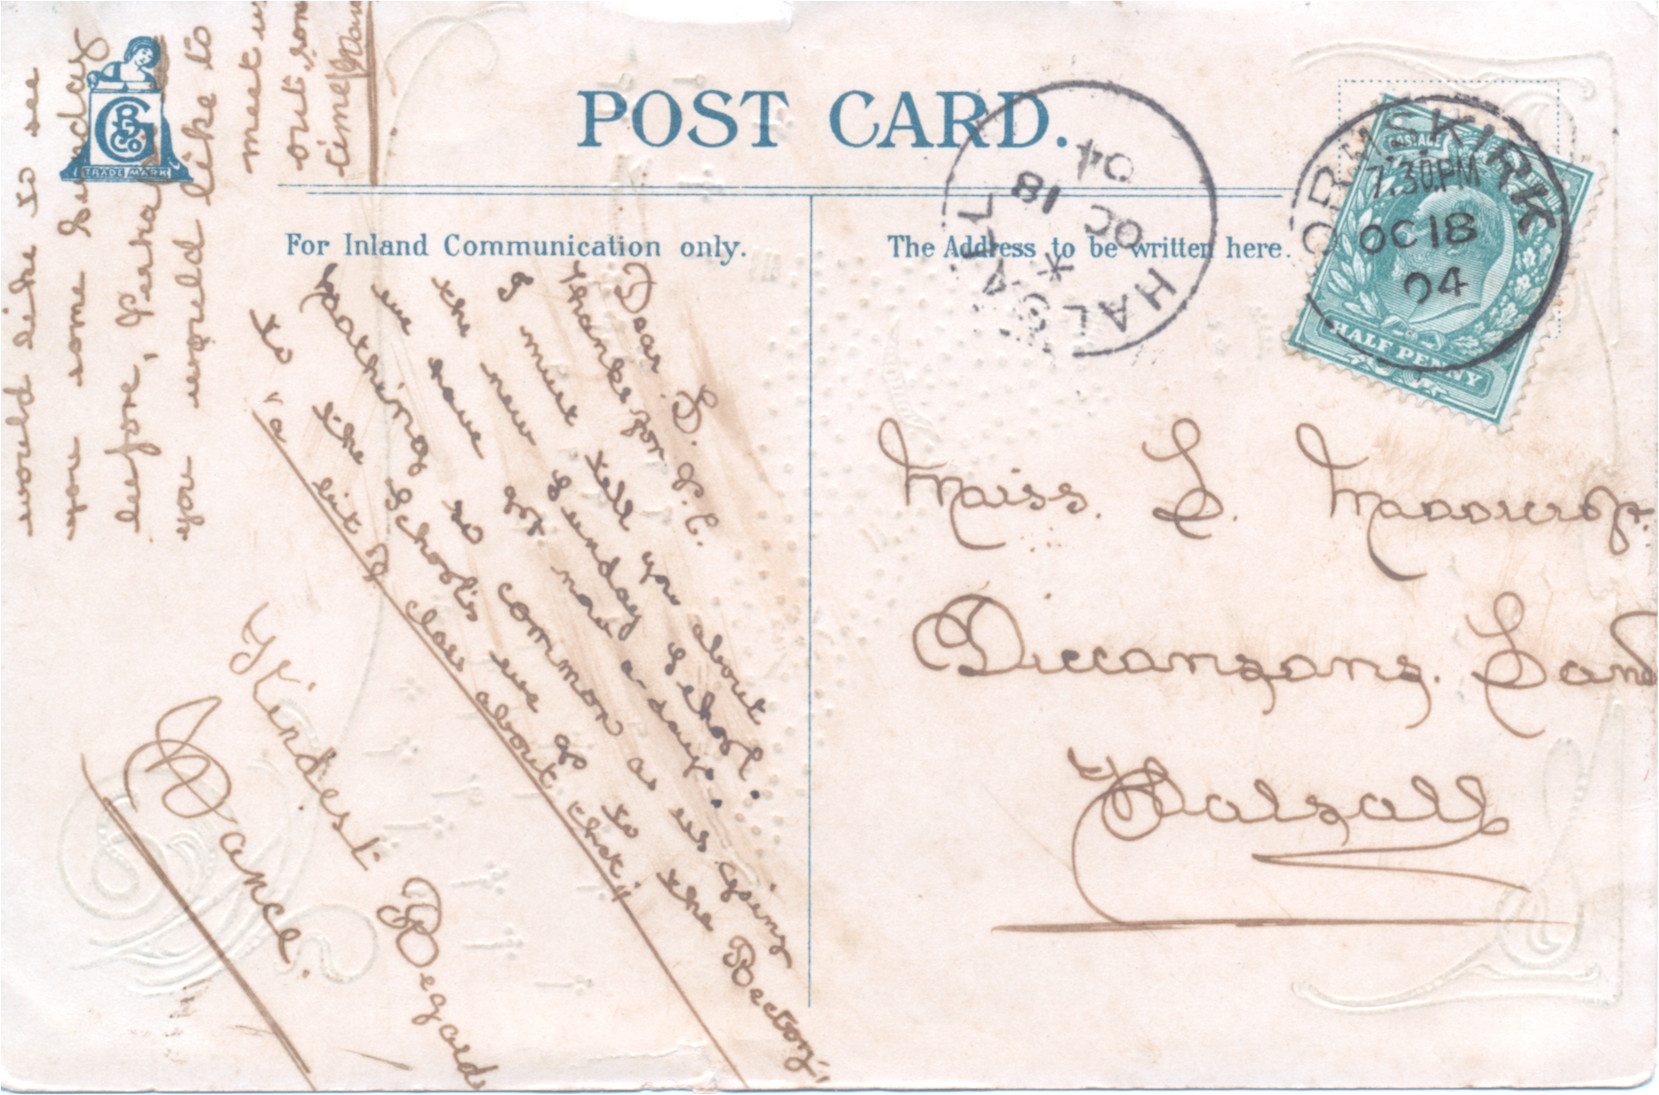 POST CARD.
TRADE MARK
For Inland Communication only.
The Address to be written here.
HALF PENNY
ORMSKIRK
7.30.PM
OC 18
04
HALSALL
OC 18
04
Miss. L.
Halsall
Dear L.
Thanks for P.C.
I must tell you about
the new Sunday School.
we have got now a-days.
Nothing so common as us going
to the School's we go to the Rectory,
"a bit o' class about that,"
Kindest Regards
Nance.
would like to see
you some Sunday
before,
you would like to
meet
out some
time